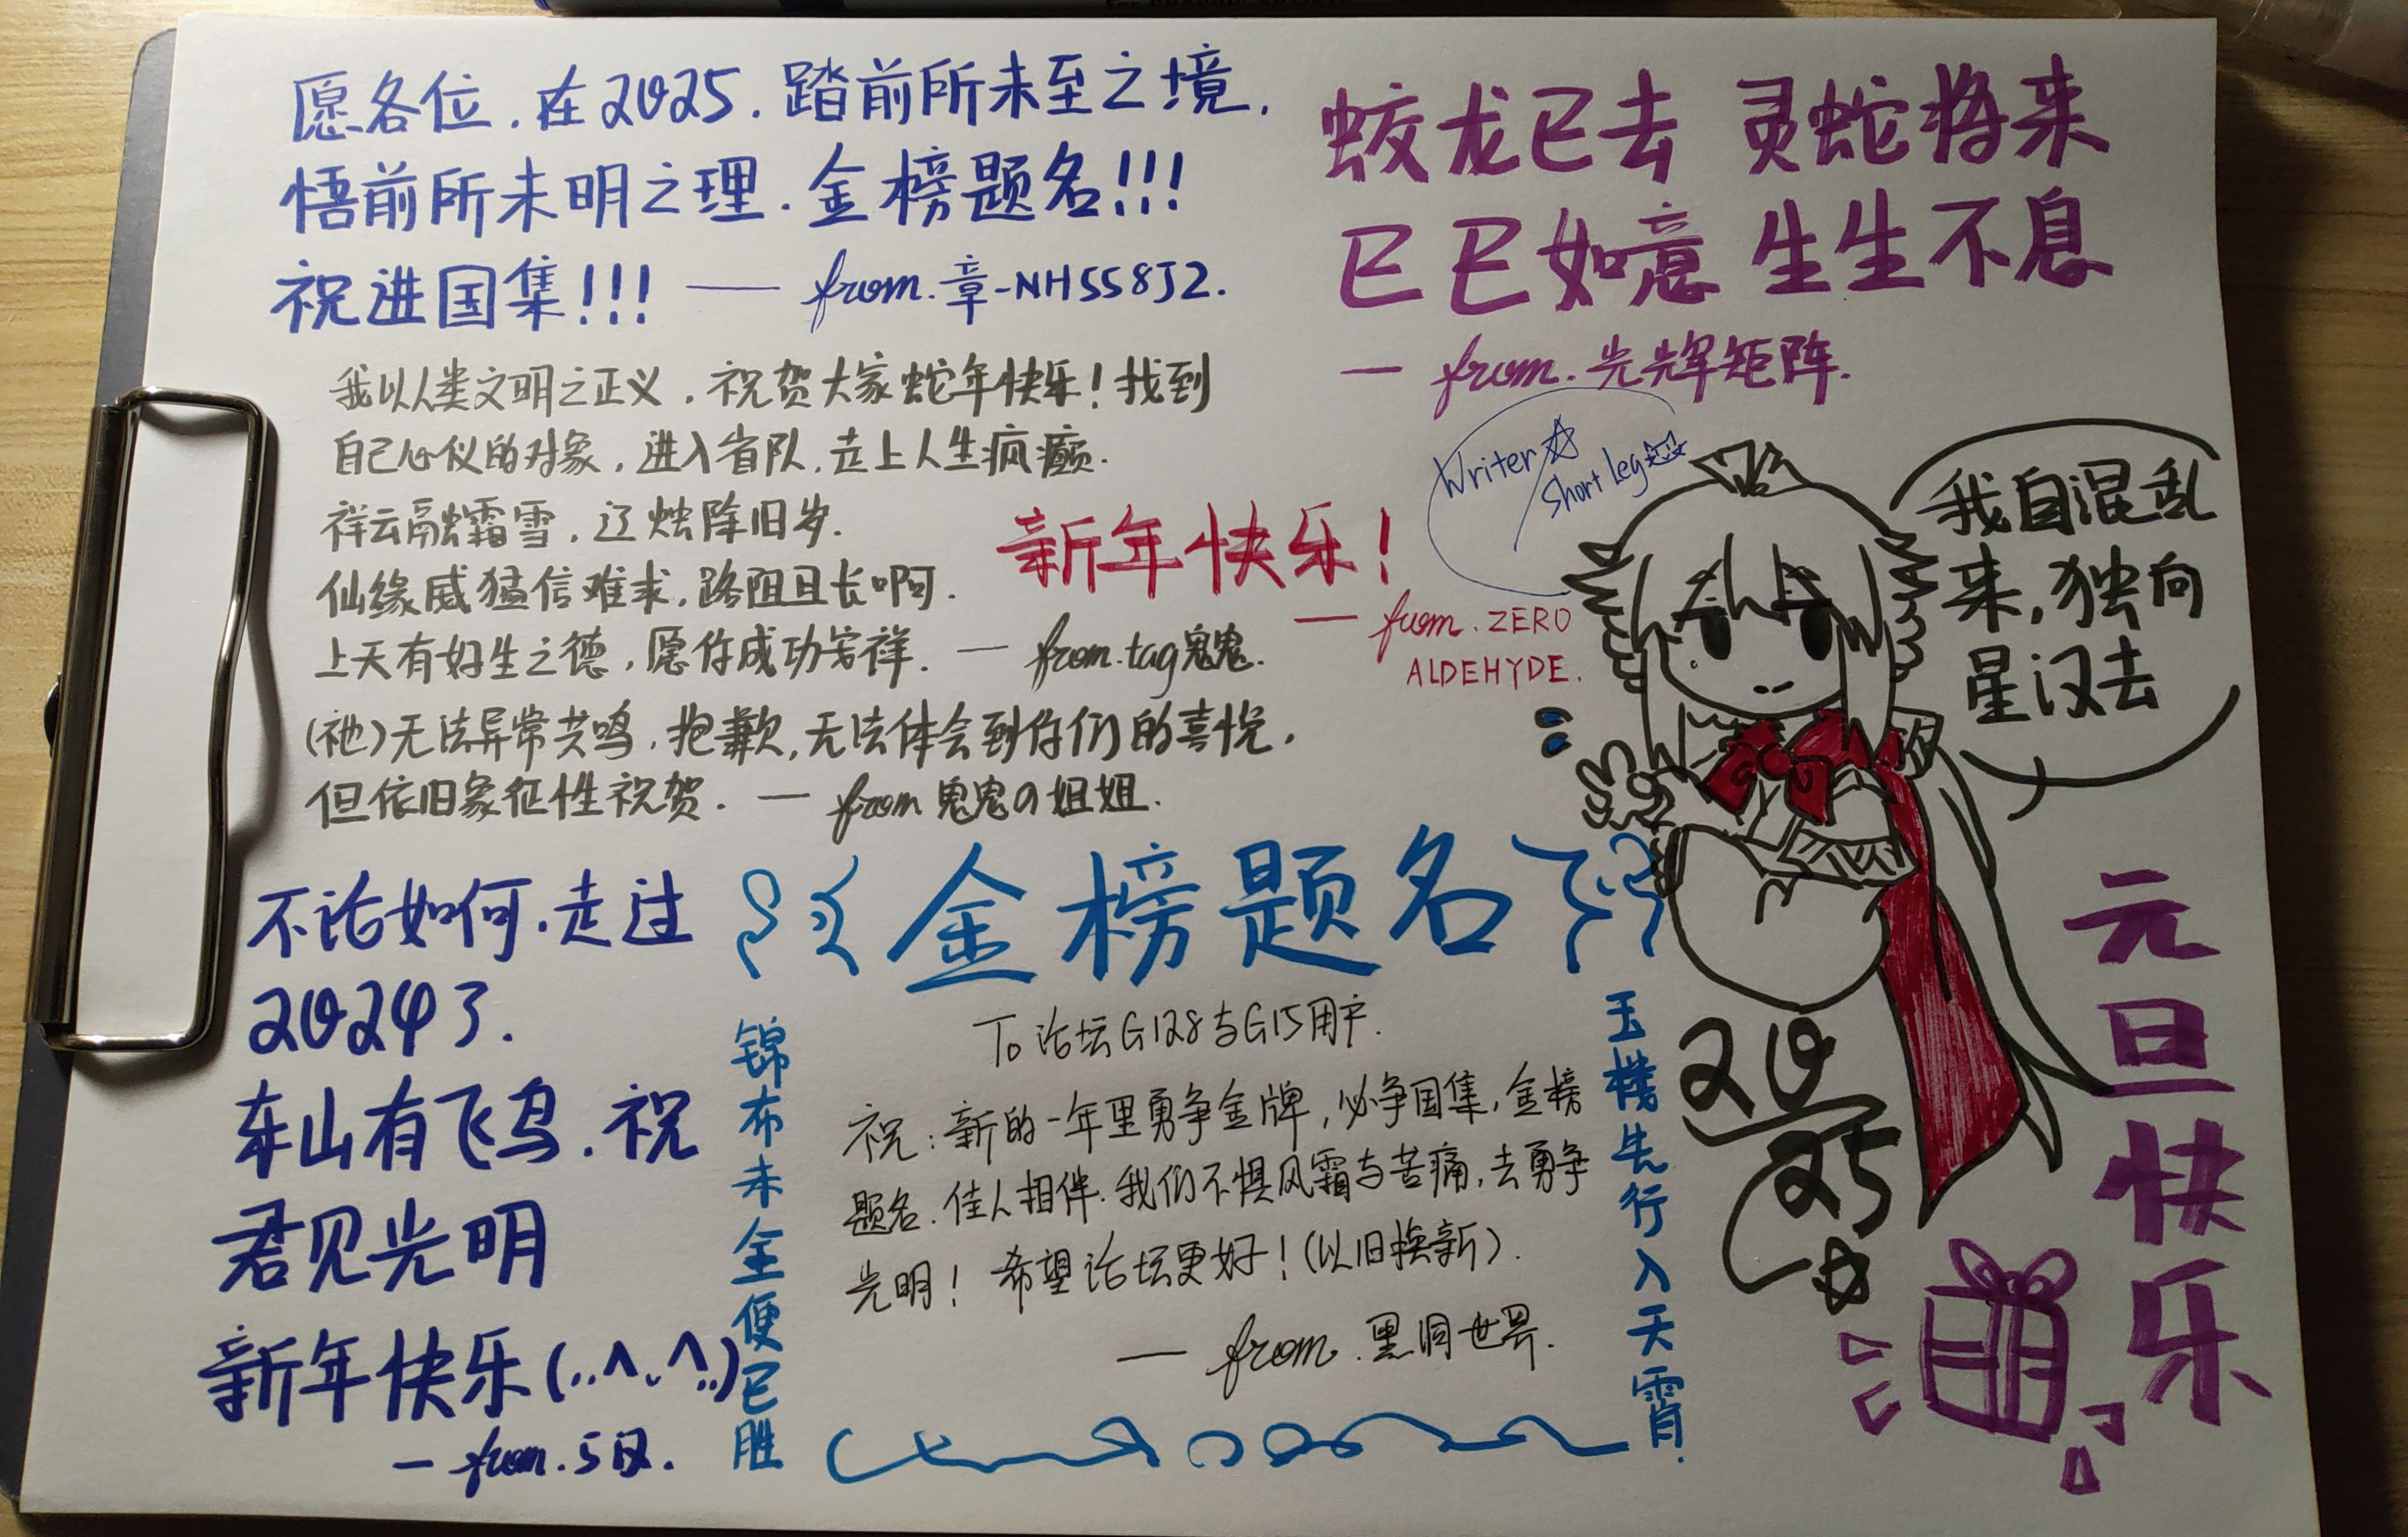 愿各位.在2025.踏前所未至之境,
悟前所未明之理.金榜题名!!!
祝进国集!!! —— from.章-NH558J2.
蛟龙已去 灵蛇将来
巳巳如意 生生不息
— from.光辉矩阵.
我以人类文明之正义,祝贺大家蛇年快乐!找到
自己心仪的对象,进入省队,走上人生疯癫.
祥云融霜雪,辽烛除旧岁.
仙缘威猛信难求,路阻且长啊.
上天有好生之德,愿你成功安祥. — from.tag鬼鬼.
(祂)无法异常共鸣,抱歉,无法体会到你们的喜悦,
但依旧象征性祝贺. — from 鬼鬼の姐姐.
新年快乐!
— from. ZERO
ALDEHYDE.
Writer☆
Short Leg
我自混乱
来,独向
星汉去
不论如何.走过
2024了.
东山有飞鸟.祝
君见光明
新年快乐(..^.^..)
— from.5汉.
金榜题名
锦布未全便已胜
To 论坛G128与G15用户.
祝:新的一年里勇争金牌,必争国集,金榜
题名.佳人相伴.我们不惧风霜与苦痛,去勇争
光明! 希望论坛更好!(以旧换新).
— from.黑洞世界.
玉栈先行入天霄.
2025
元旦快乐